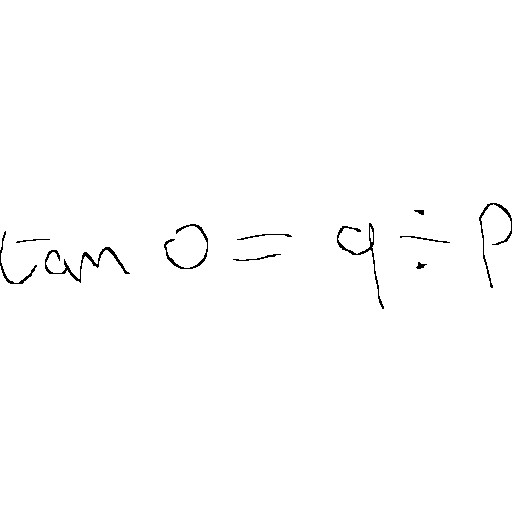 tan 0 = q ÷ p